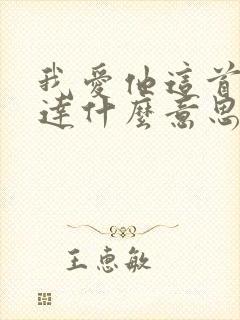 我愛他這首
達什麼意思
王惠敏